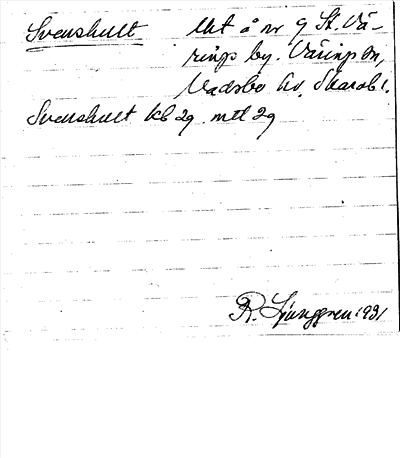 Svenshult Utt å nr 9 St. Vä-
rings by. Värings sn,
Vadsbo hd, Skarab l.
Svenshult kb 29 mtl 29
R. Ljunggren 1931